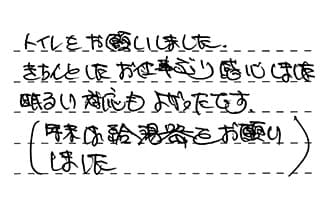 トイレをお願いしました.
きちんとしたお仕事ぶり感心しました
明るい対応もよかったです.
(年末は給湯器をお願い
しました)